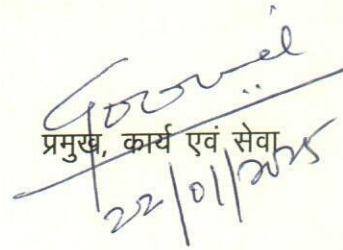 प्रमुख, कार्य एवं सेवा
22/01/2025